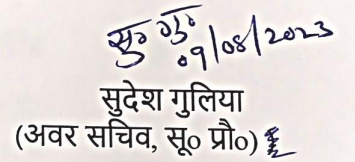 सु० गु०
09/08/2023
सुदेश गुलिया
(अवर सचिव, सू० प्रौ०)